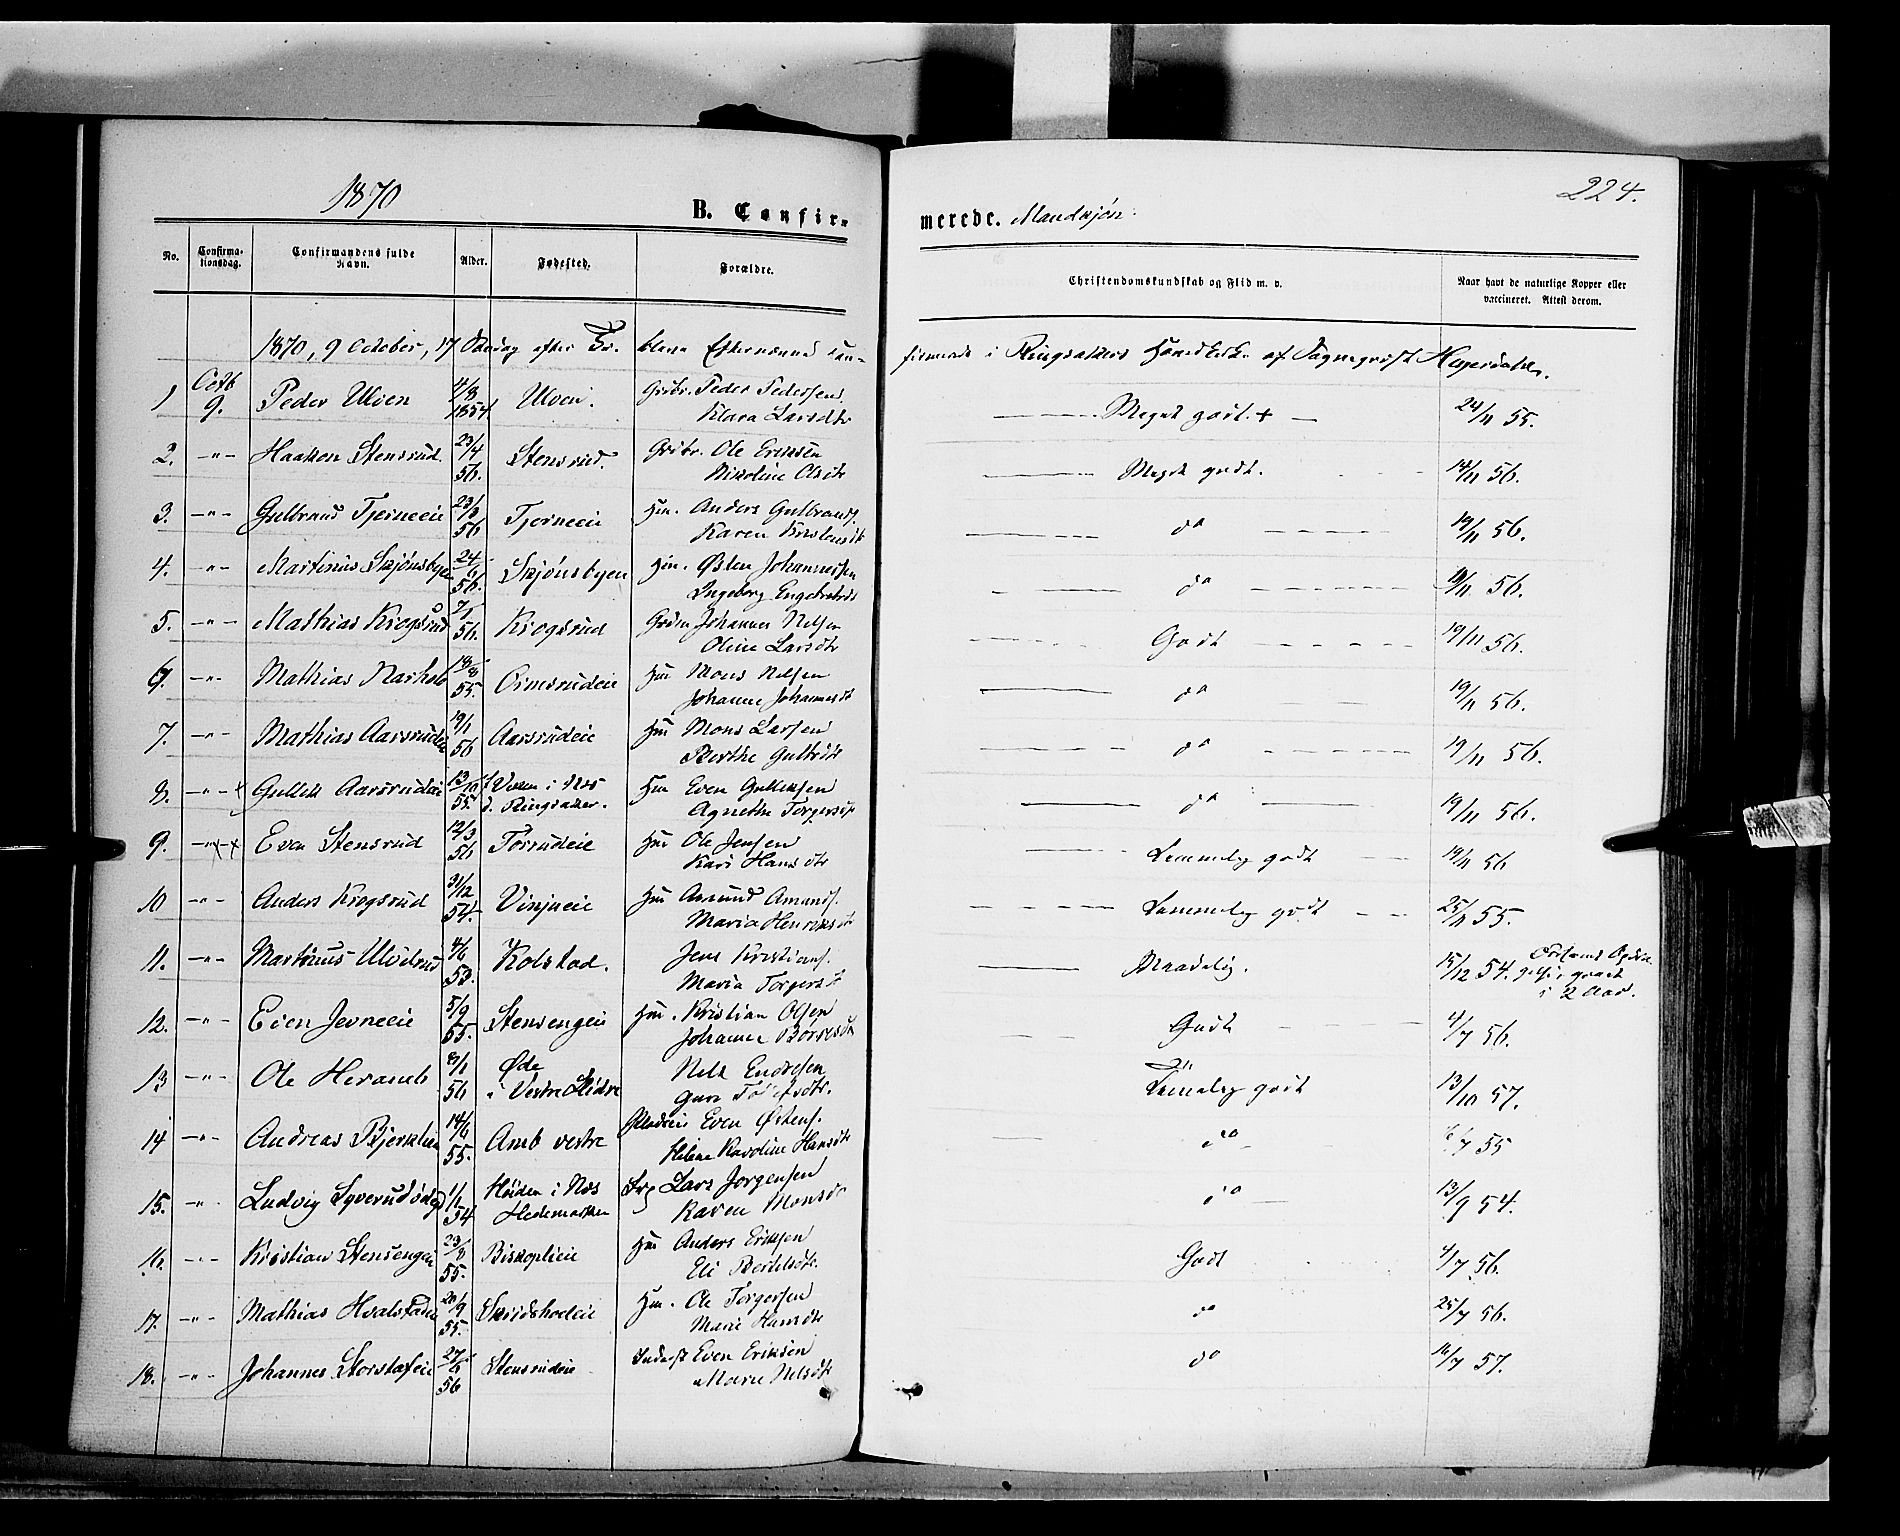 1870
224.
B. Confir-
merede. Mandkjøn.
No.
Confirma-
tionsdag.
Confirmandens fulde
Navn.
Alder.
Fødested.
Forældre.
Christendomskundskab og Flid m. v.
Naar havt de naturlige Kopper eller
vaccineret. Attest derom.
1870, 9 October, 17 Søndag efter Tr. bleve Efternævnte con-
firmerede i Ringsakers Hovedkirke af Sogneprest Heyerdahl.
1 Octb 9. Peder Ulven 4/8 1854 Ulven. Grbr. Peder Pedersen Meget godt. + 24/11 55.
Klara Larsdtr
2. -"- Haaken Stensrud 23/4 56. Stensrud. Grbr. Ole Eriksen Meget godt. 14/11 56.
Nikoline Olsdtr
3. -"- Gulbrand Tjerneeie 56 Tjerneeie Hm. Anders Gulbrands. do 19/11 56.
Karen Kristensdtr
4. -"- Martinus Skjønsbyen 24/6 56. Skjønsbyen Hm. Østen Johannessen do 19/11 56.
Ingeborg
5. -"- Mathias Krogsrud 7/1 56. Krogsrud Johannes Nilsen Godt 19/11 56.
Oline Larsdtr
6. -"- Mathias 18/8 55. Ormsrudeie Hm Mons Nilsen do 19/11 56.
Johanne Johannesdt
7. -"- Mathias Aarsrudeie 19/1 56 Aarsrudeie Hm Mons Larsen do 19/11 56.
Berthe Gulbrdtr
8. -"- + Gullik Aarsrudeie 13/10 55. i Næs Hm Even Gulliksen do 19/11 56.
d. Ringsaker. Agnethe Torgersdt
9. -"- Even Stensrud 12/3 56 Tørrudeie Hm Ole Jensen Temmelig godt 19/11 56
Kari Hansdtr
10 -"- Anders Krogsrud 31/12 54. Vinjueie Hm Amund Amunds. Temmelig godt 25/11 55.
Maria Henriksdt
11. -"- Martinus Ulvilrud 4/6 53. Kolstad. Jens Kristians. Maadelig. 15/12 54.
Maria Torgersdt
i 2 Aar.
12. -"- Even Jevneeie 5/9 55. Stensengeie Hm. Kristian Olsen Godt 4/7 56.
Johanne
13 -"- Ole 8/1 56 Øde Nils Endresen Temmelig godt 13/10 57.
i Vestre Slidre
14 -"- Andreas 14/6 55. Amb vestre Even Østens. do 7 55
Helene Karoline Hansdtr
15. -"- Ludvig 1/1 54 Høiden i Næs Lars Jørgensen do 13/9 54.
Hedemarken Karen Monsd
16. -"- Kristian Stensengeie 23/8 55. Biskoplieie Hm Anders Eriksen Godt 4/7 56.
Eli Bertelsdtr.
17. -"- Mathias 20/9 55. Skridsholeie Hm. Ole Torgersen do 25/7 56.
Marie Hansdtr
18. -"- Johannes Storstadeie 27/6 56 Stensrudeie Inderst Even Eriksen do 16/7 57.
Marie Nilsdtr